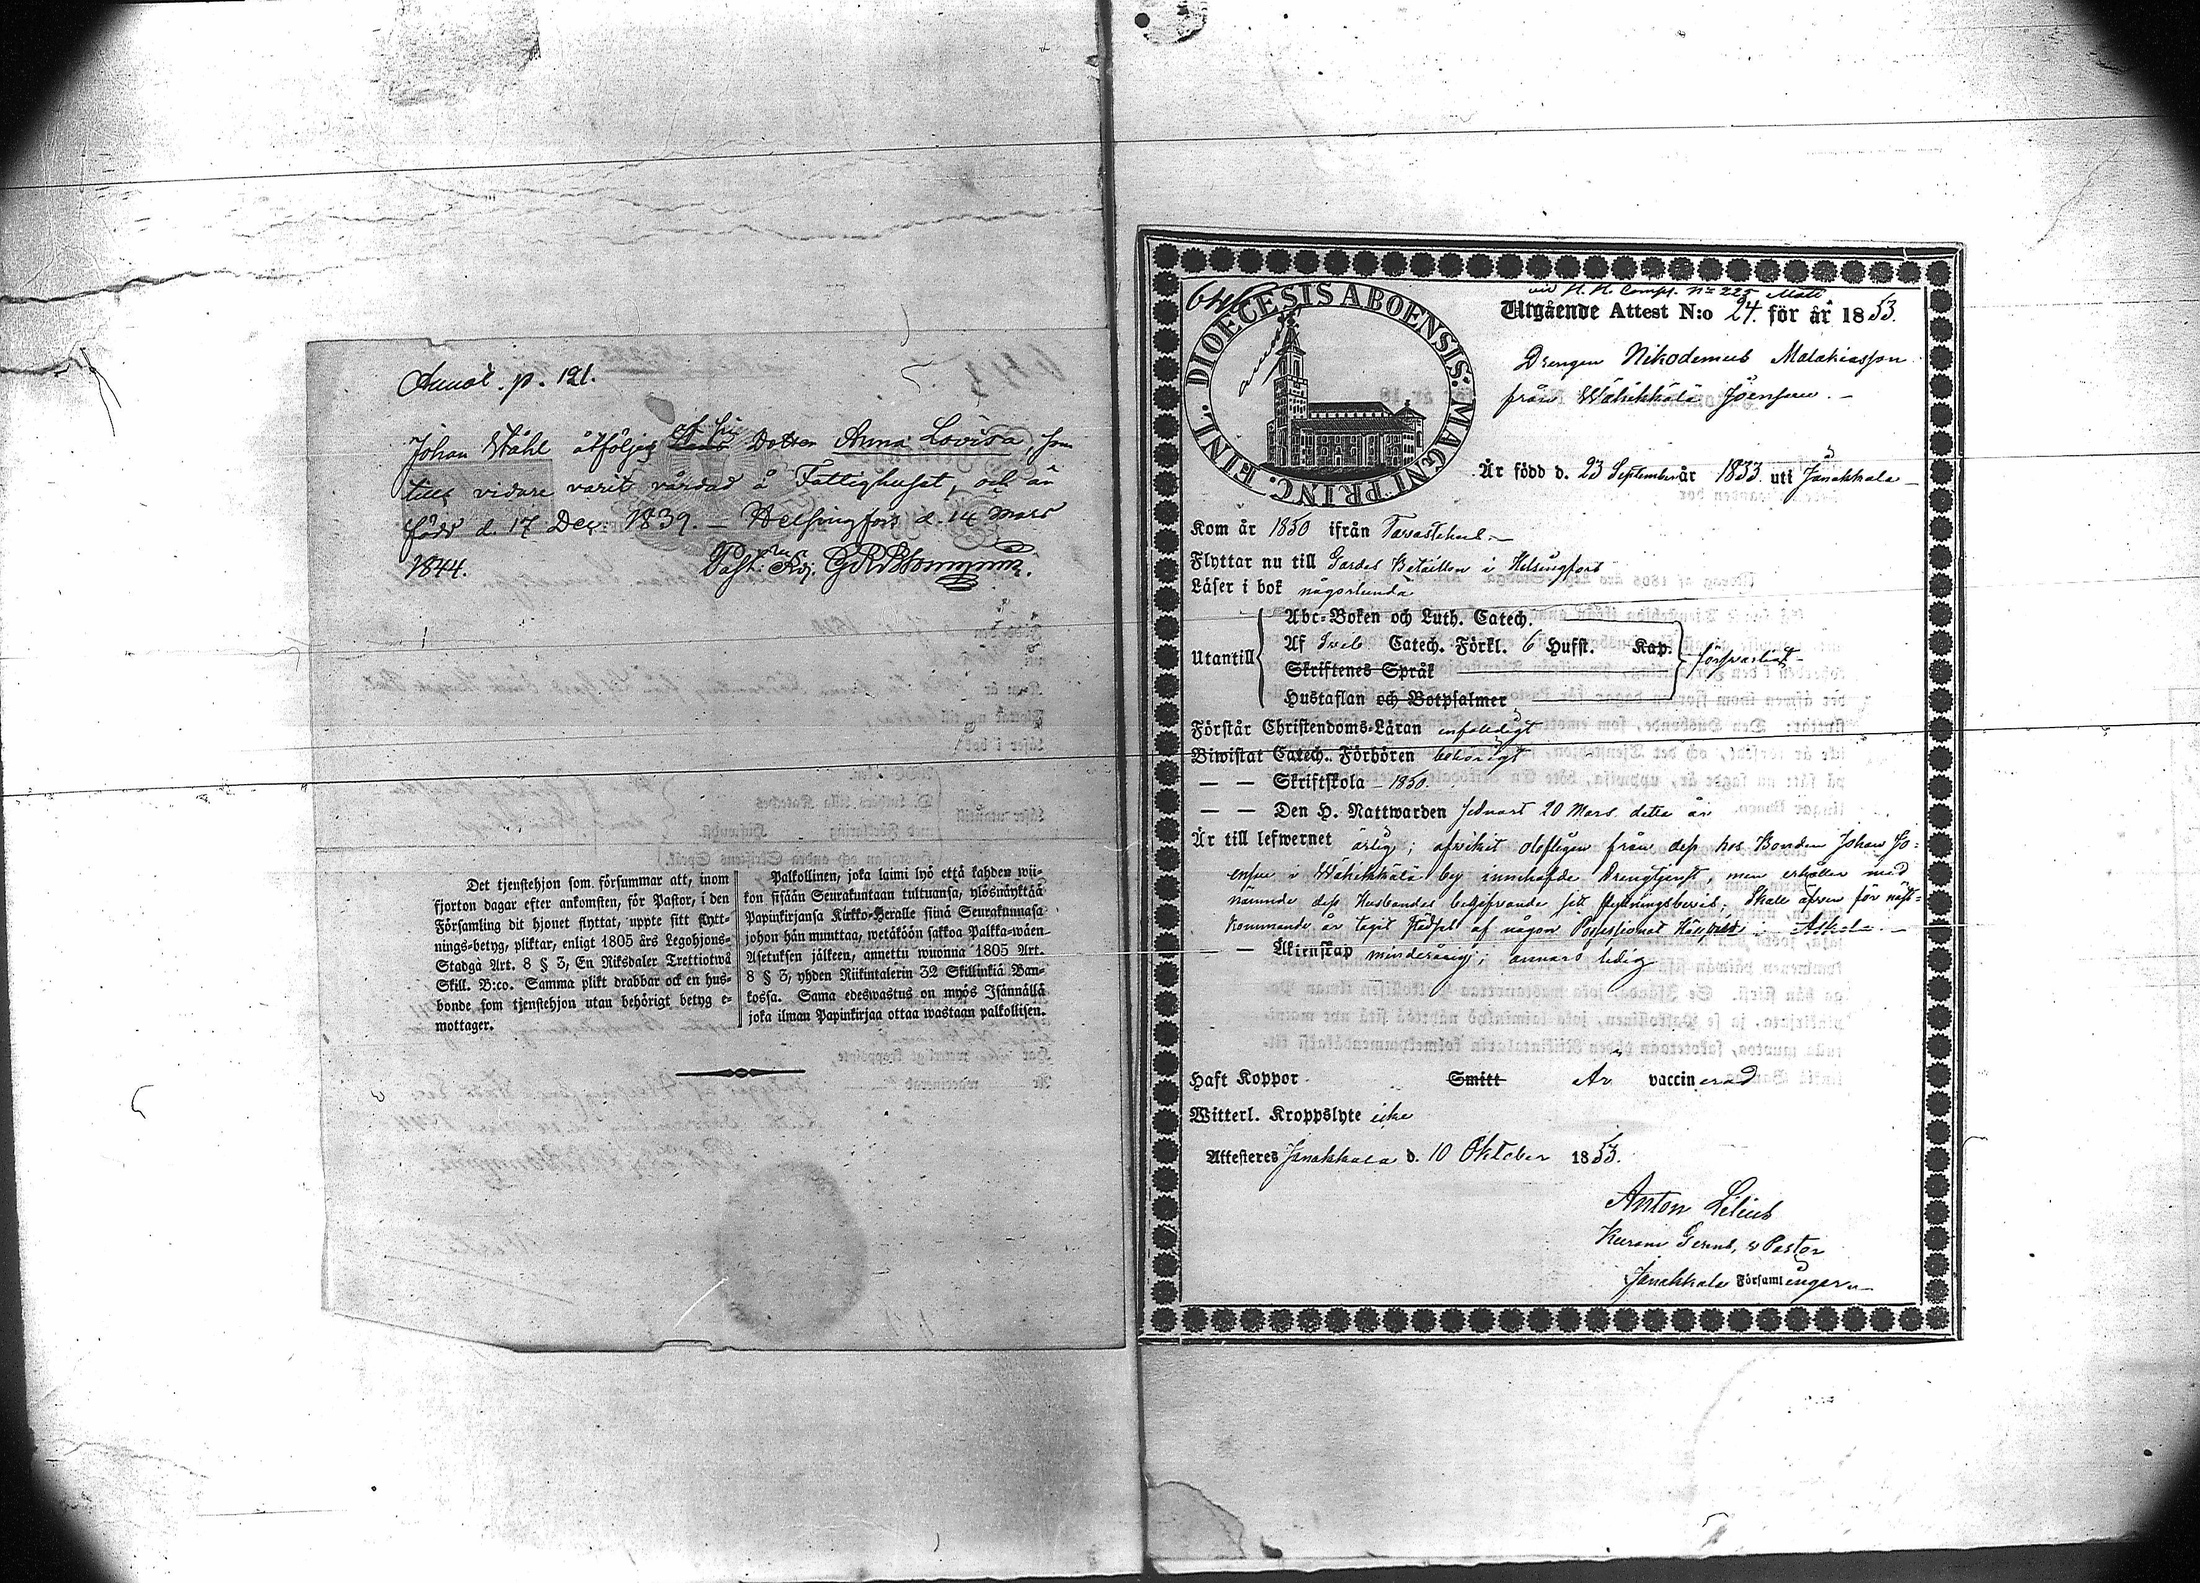 Annot. p. 121.
Johan Ståhl åtföljes af Dottren Anna Lovisa, som
tills vidare varit vårdad å Fattighuset, och är
född d. 17 Dec. 1839. — Helsingfors d. 14 Mars
1844.
Det tjenstehjon som försummar att, inom
fjorton dagar efter ankomsten, för Pastor, i den
Församling dit hjonet flyttat, uppte sitt flytt-
nings-betyg, pliktar, enligt 1805 års Legohjons-
Stadga Art. 8 § 3, En Riksdaler Trettiotwå
Skill. B:co. Samma plikt drabbar ock en hus-
bonde som tjenstehjon utan behörigt betyg e-
mottager.
Palkollinen, joka laimi lyö että kahden wii-
kon sisään Seurakuntaan tultuansa, ylösnäyttää
Papinkirjansa Kirkko-Heralle siinä Seurakunnasa
johon hän muuttaa, wetäköön sakkoa Palkka-wäen
Asetuksen jälkeen, annettu wuonna 1805 Art.
8 § 3, yhden Riikintalerin 32 Skillinkiä Ban-
kossa. Sama edeswastus on myös Isännällä
joka ilman Papinkirjaa ottaa wastaan palkollisen.
DIOECESIS ABOENSIS. MAGNI PRINC. FINL.
Utgående Attest N:o 24. för år 1853.
Drengen Nikodemus Malakiasson
från Wähikkälä Joensuu. —
Är född d. 23 September år 1833 uti Janakkala
Kom år 1850 ifrån Tavastehus
Flyttar nu till Gardes Bataillon i Helsingfors
Läser i bok någorlunda
Utantill
Abc-Boken och Luth. Catech.
Af Sveb. Catech. Förkl. 6 Hufst. Kap.
försvarligt
Skriftenes Språk
Hustaflan och Botpsalmer
Förstår Christendoms-Läran enfaldigt
Biwistat Catech. Förhören behörigt
— — Skriftskola 1850.
— — Den H. Nattwarden sednast 20 Mars detta år
Är till lefwernet ärlig; afvikit olofligen från dess hos Bonden Johan Jo-
ensuu i Wähikkälä by innehafde Drengtjenst, men erhåller med
nämnde dess Husbondes begifvande sitt flyttningsbevis. Skall äfven för näst-
kommande år tagit städsel af någon
— — Äktenskap minderårig; annars ledig
Haft Koppor Smitt Är vaccinerad
Witterl. Kroppslyte icke
Attesteres Janakkala d. 10 Oktober 1853.
Anton Lilius
Pastor
Janakkala Församlingar